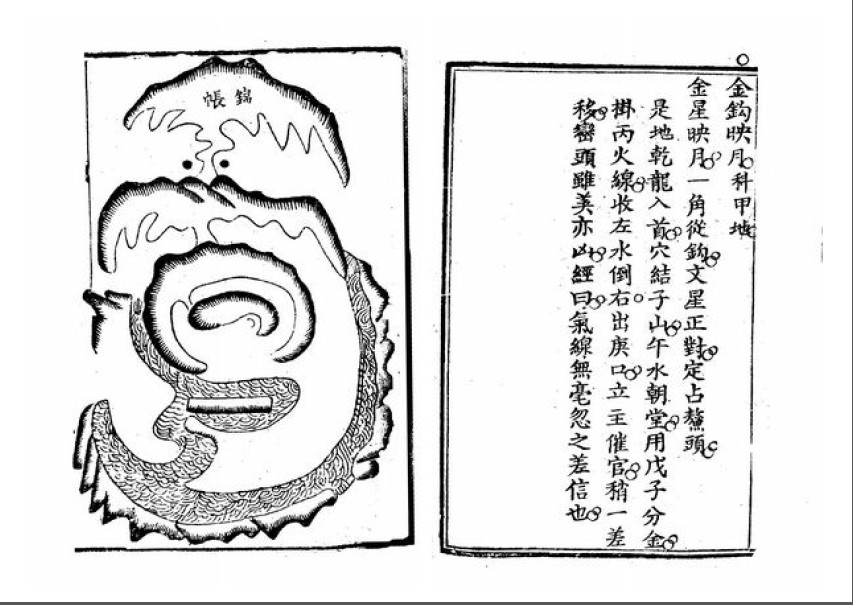 金鈎映月科甲地
金星映月一角從鈎文星正對定占鰲頭
是地乾龍入首穴結子山午水朝堂用戊子分金
掛丙火線收左水倒右出庚口立主催官稍一差
移巒頭雖美亦凶經曰氣線無毫忽之差信也
帳